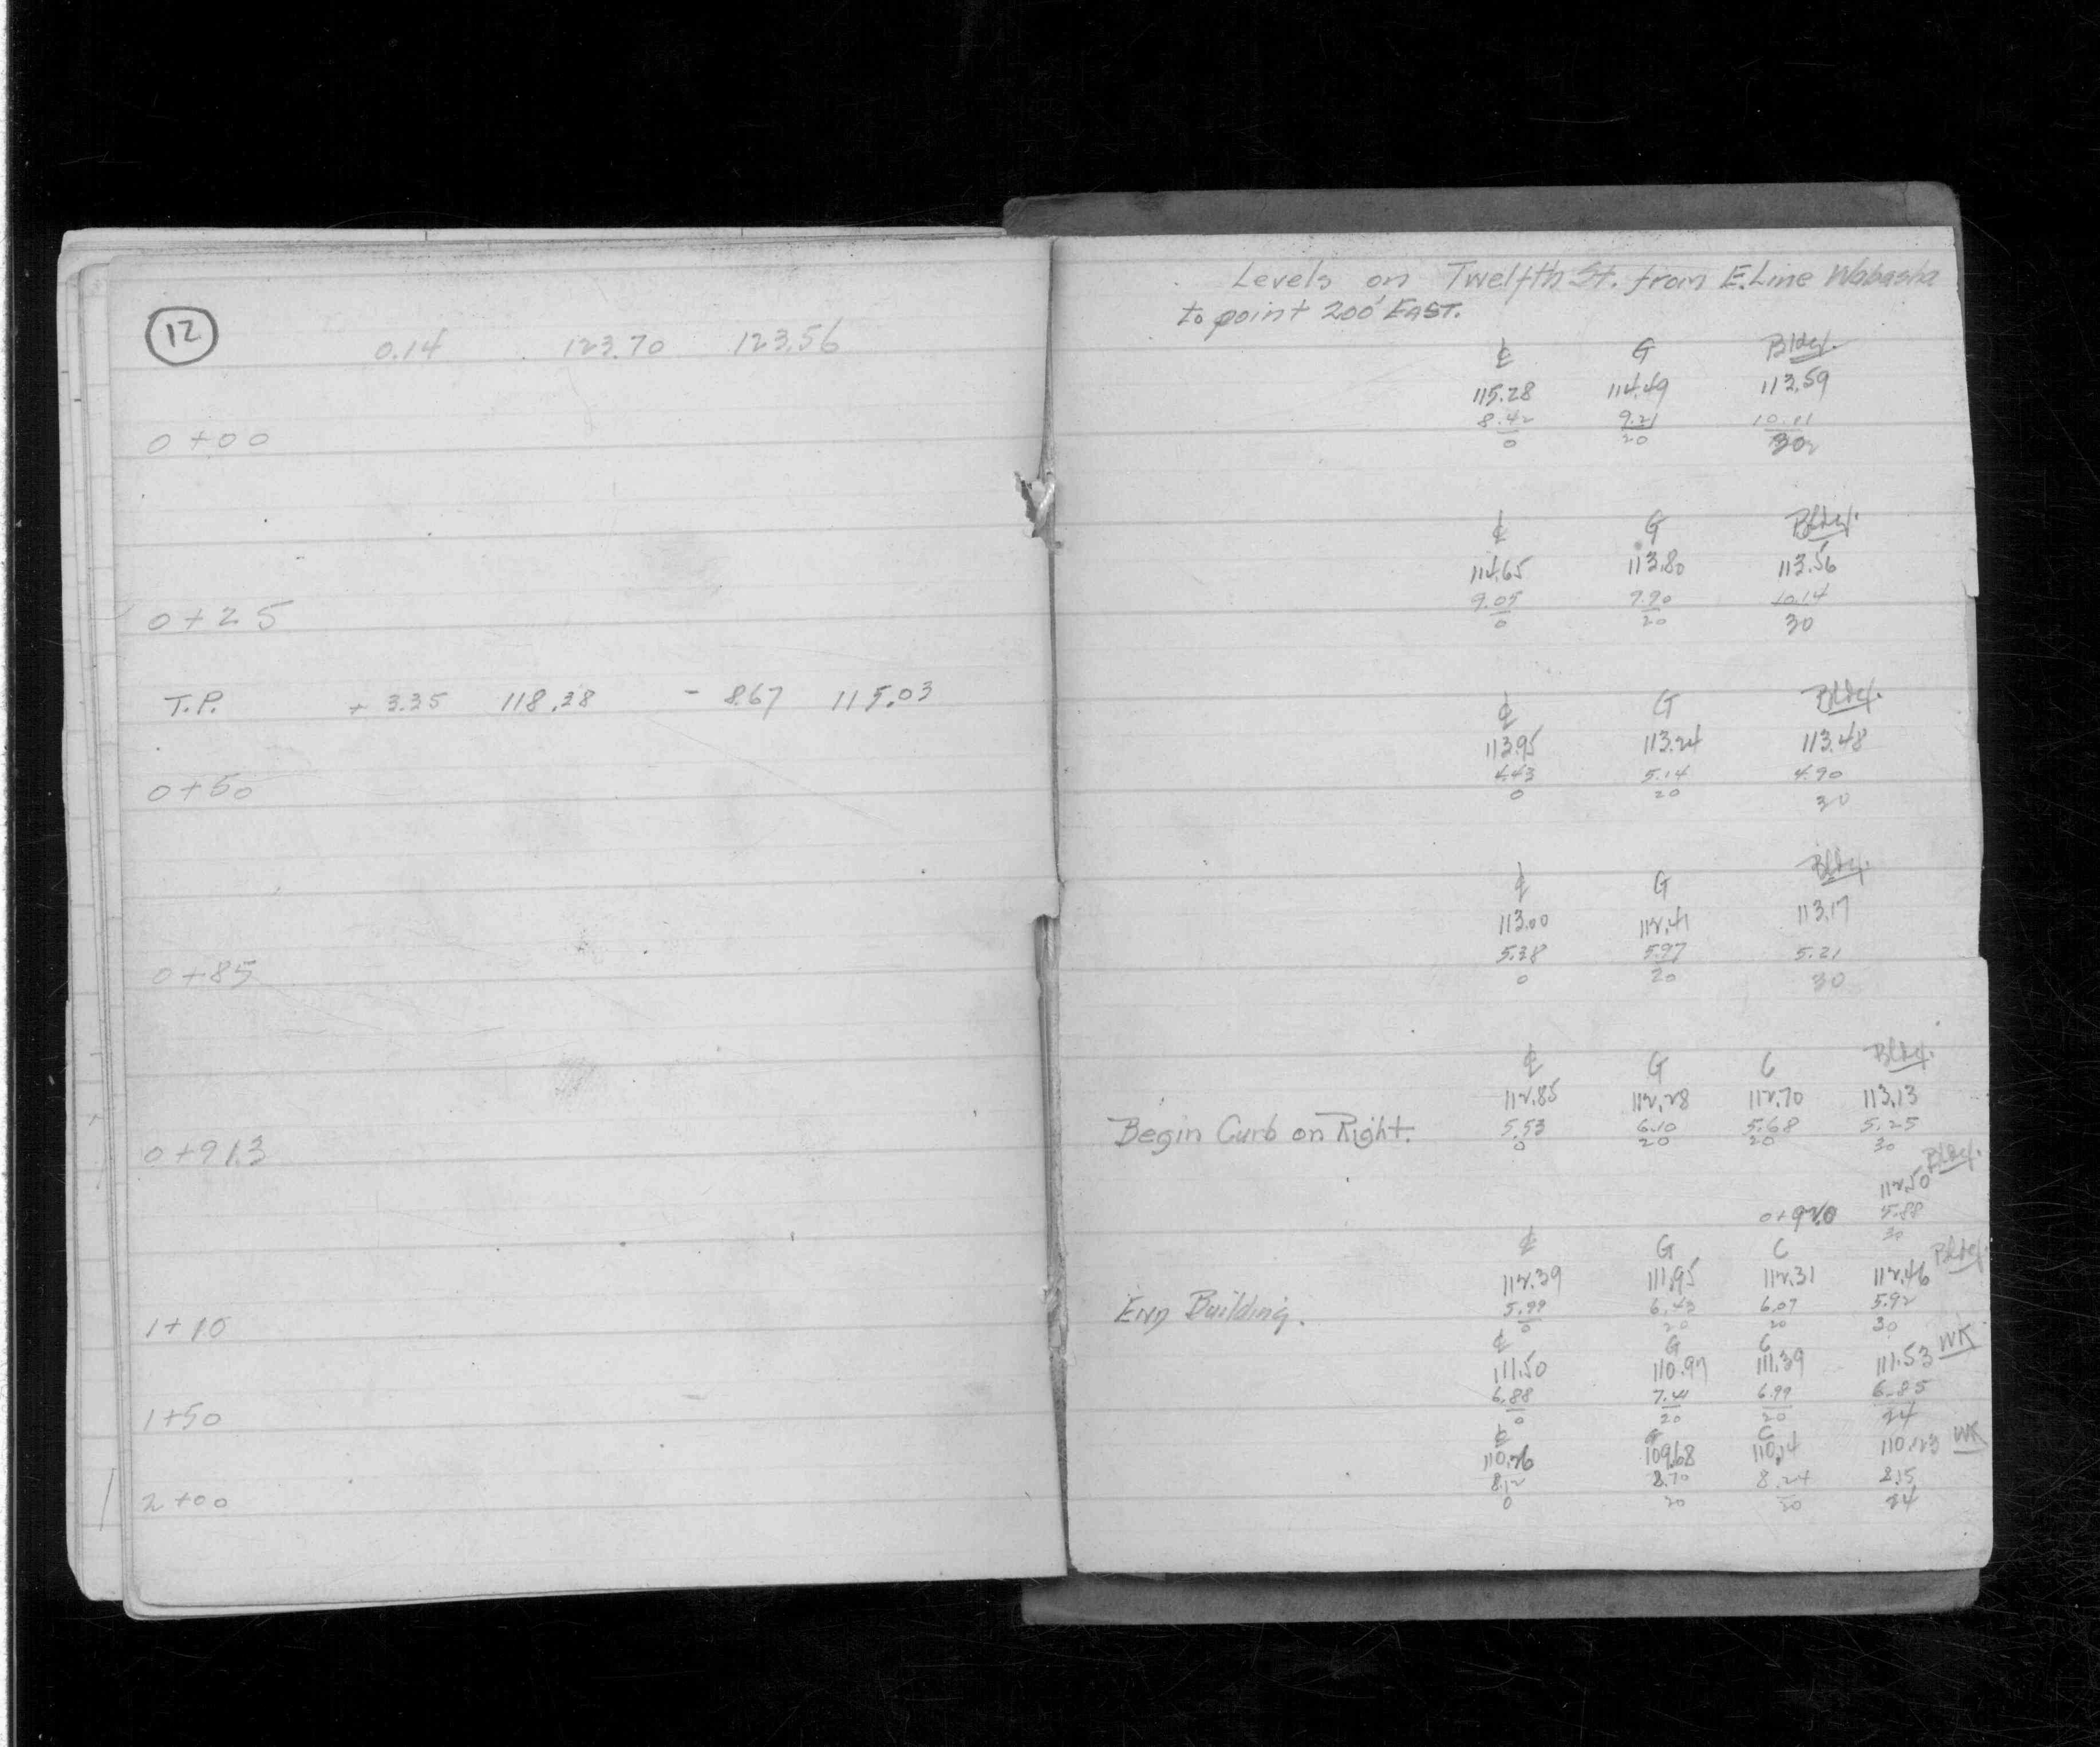 12
0.14 123.70 123.56
0+00
0+25
T.P. + 3.35 118.38 - 8.67 115.03
0+50
0+85
0+91.3
1+10
1+50
2+00
Levels on Twelfth St. from E. Line Wabasha
to point 200' EAST.
℄ G Bldg.
115.28 114.49 113.59
8.42 9.21 10.11
0 20 30
℄ G Bldg.
114.65 113.80 113.56
9.05 9.90 10.14
0 20 30
℄ G Bldg.
113.95 113.24 113.48
4.43 5.14 4.90
0 20 30
℄ G Bldg.
113.00 112.41 113.17
5.38 5.97 5.21
0 20 30
℄ G C Bldg.
112.85 112.28 112.70 113.13
Begin Curb on Right. 5.53 6.10 5.68 5.25
0 20 20 30
Bldg.
112.50
0+92.0 5.88
30
℄ G C Bldg.
112.39 111.95 112.31 112.46
End Building. 5.99 6.43 6.07 5.92
0 20 20 30
℄ G C WK
111.50 110.97 111.39 111.53
6.88 7.41 6.99 6.85
0 20 20 24
℄ G C WK
110.26 109.68 110.14 110.23
8.12 8.70 8.24 8.15
0 20 20 24